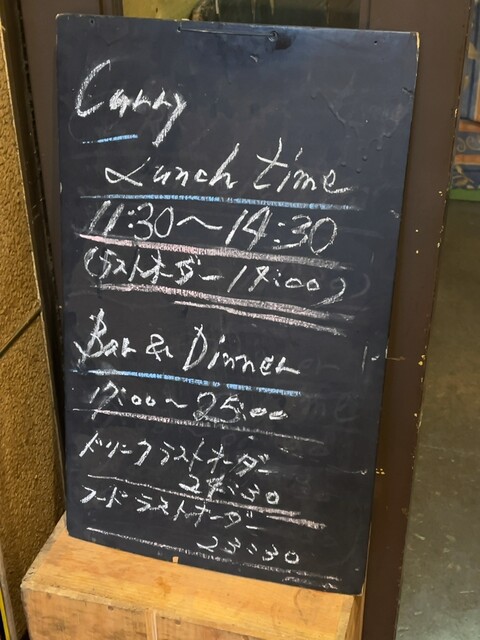 Curry
Lunch time
11:30～14:30
(ラストオーダー 14:00)
Bar & Dinner
17:00～25:00
ドリンクラストオーダー
24:30
フードラストオーダー
23:30